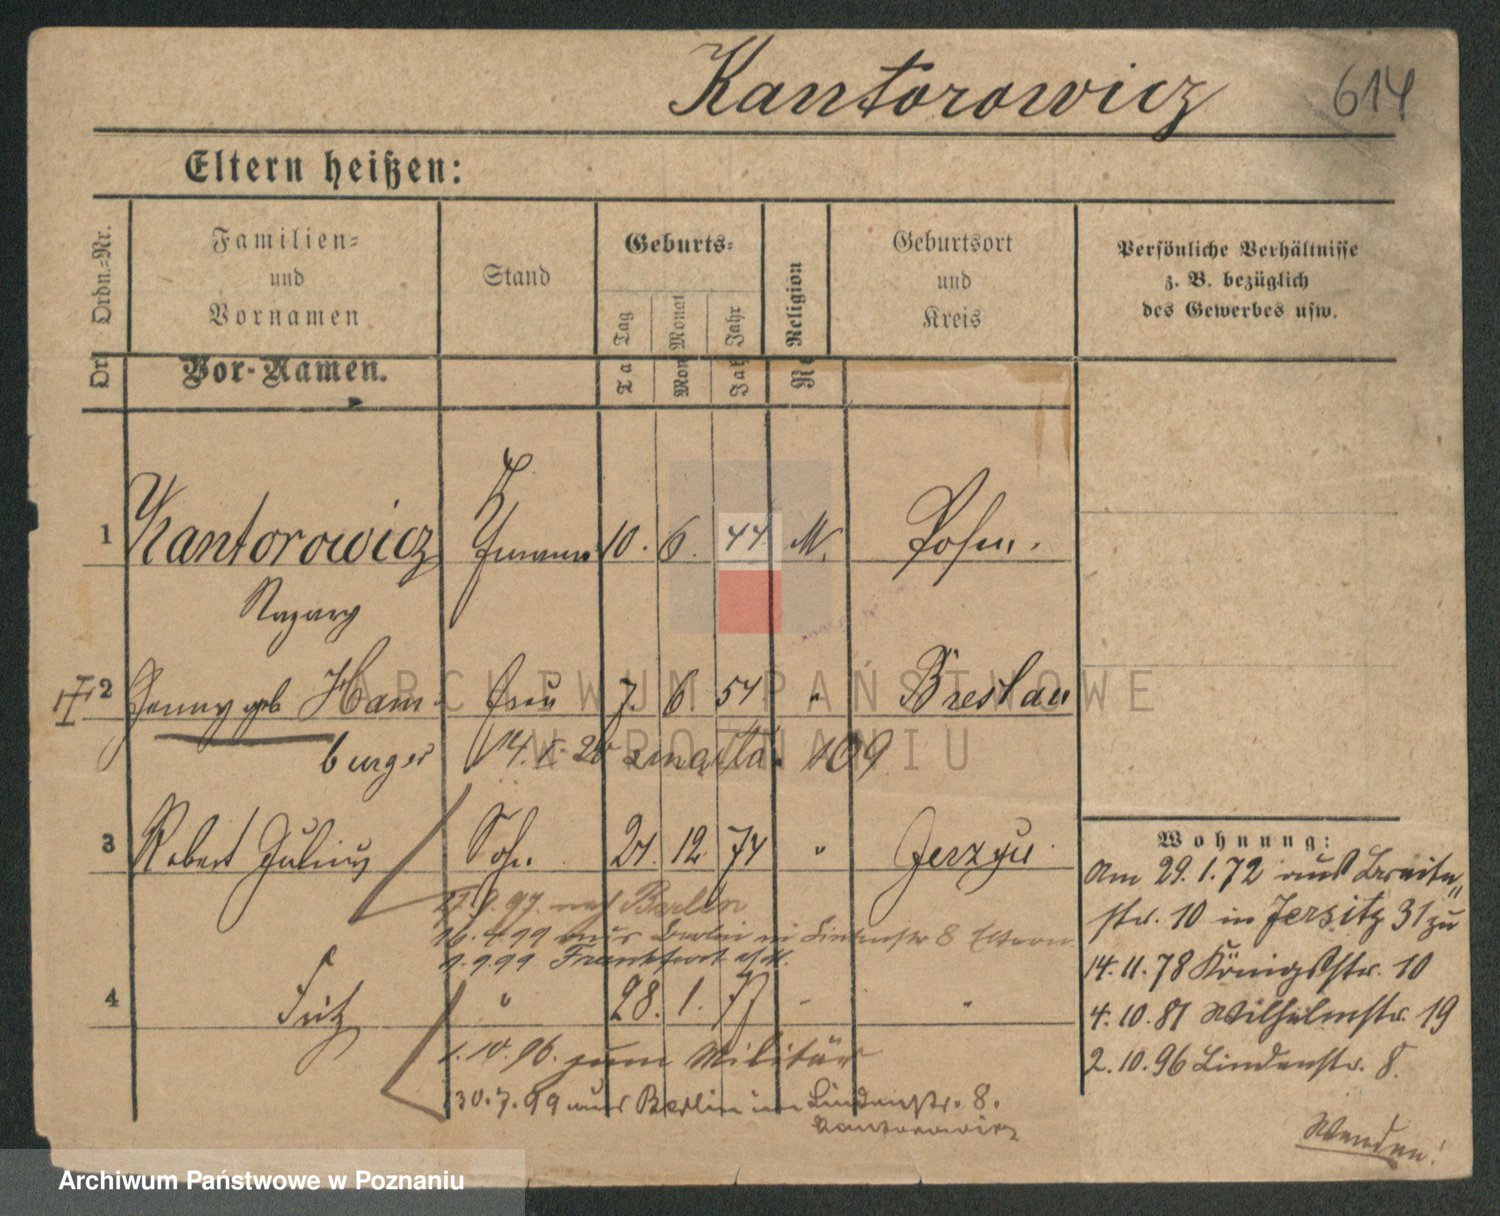 Kantorowicz 614
Eltern heißen:
Ordn.-Nr.
Familien-
und
Vornamen
Stand
Geburts-
Tag
Monat
Jahr
Religion
Geburtsort
und
Kreis
Persönliche Verhältnisse
z. B. bezüglich
des Gewerbes usw.
Vor-Namen.
1 Kantorowicz 10. 6. 44. M. Posen.
Nazary
2 Jenny geb Ham- Frau 7. 6 54 " Breslau
burger 14. I. zmarła 109
3 Robert Julius Sohn. 21. 12. 74 " Jerzyce.
97. nach Berlin
99 aus Berlin in Lindenstr 8 Eltern
1.9.99 Frankfurt a/M.
4 Fritz " 28. 1. 77 " "
1.10.96. zum Militär
30.7.99 aus Berlin in Lindenstr. 8.
Kantorowicz
Wohnung:
Am 29.1.72 aus Breite-
str. 10 in Jersitz 31 zu
14.11.78 Königsstr. 10
4.10.81 Wilhelmstr. 19
2.10.96 Lindenstr. 8.
Wenden!
ARCHIWUM PAŃSTWOWE
W POZNANIU
Archiwum Państwowe w Poznaniu